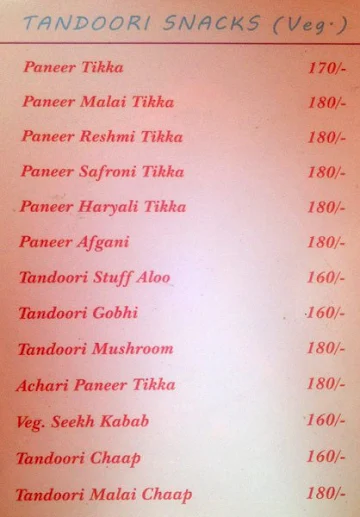 TANDOORI SNACKS (Veg.)
Paneer Tikka 170/-
Paneer Malai Tikka 180/-
Paneer Reshmi Tikka 180/-
Paneer Safroni Tikka 180/-
Paneer Haryali Tikka 180/-
Paneer Afgani 180/-
Tandoori Stuff Aloo 160/-
Tandoori Gobhi 160/-
Tandoori Mushroom 180/-
Achari Paneer Tikka 180/-
Veg. Seekh Kabab 160/-
Tandoori Chaap 160/-
Tandoori Malai Chaap 180/-